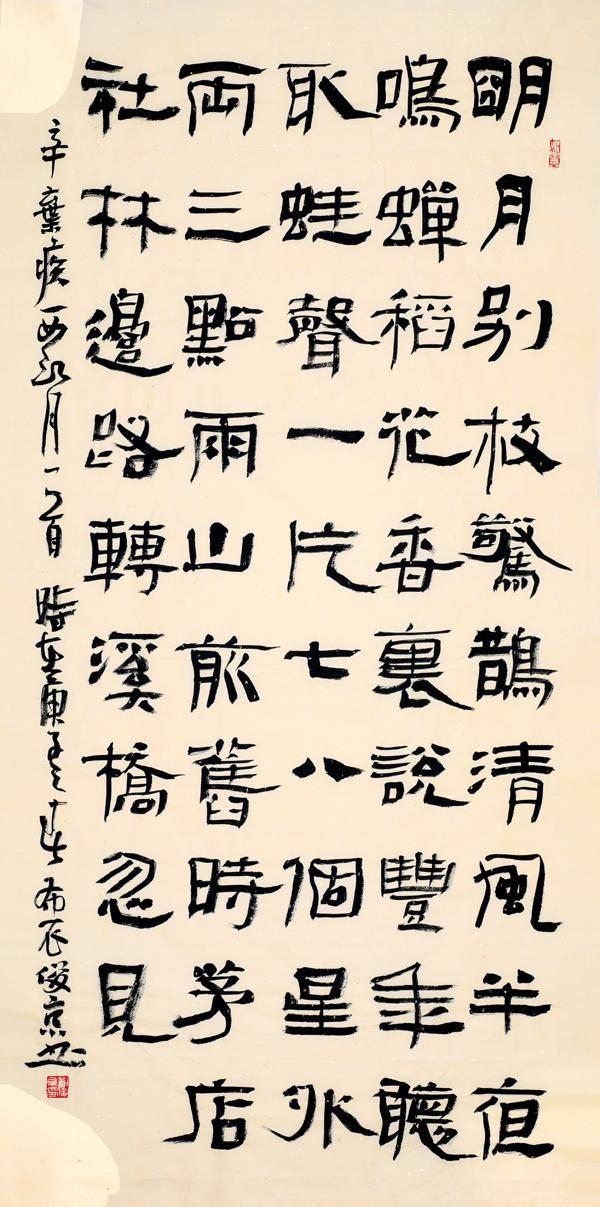 明月别枝驚鵲清風半夜
鳴蟬稻花香裏說豐年聽
取蛙聲一片七八個星外
兩三點雨山前舊時茅店
社林邊路轉溪橋忽見
辛棄疾西江月一首 時在庚子之春 布衣俊京书